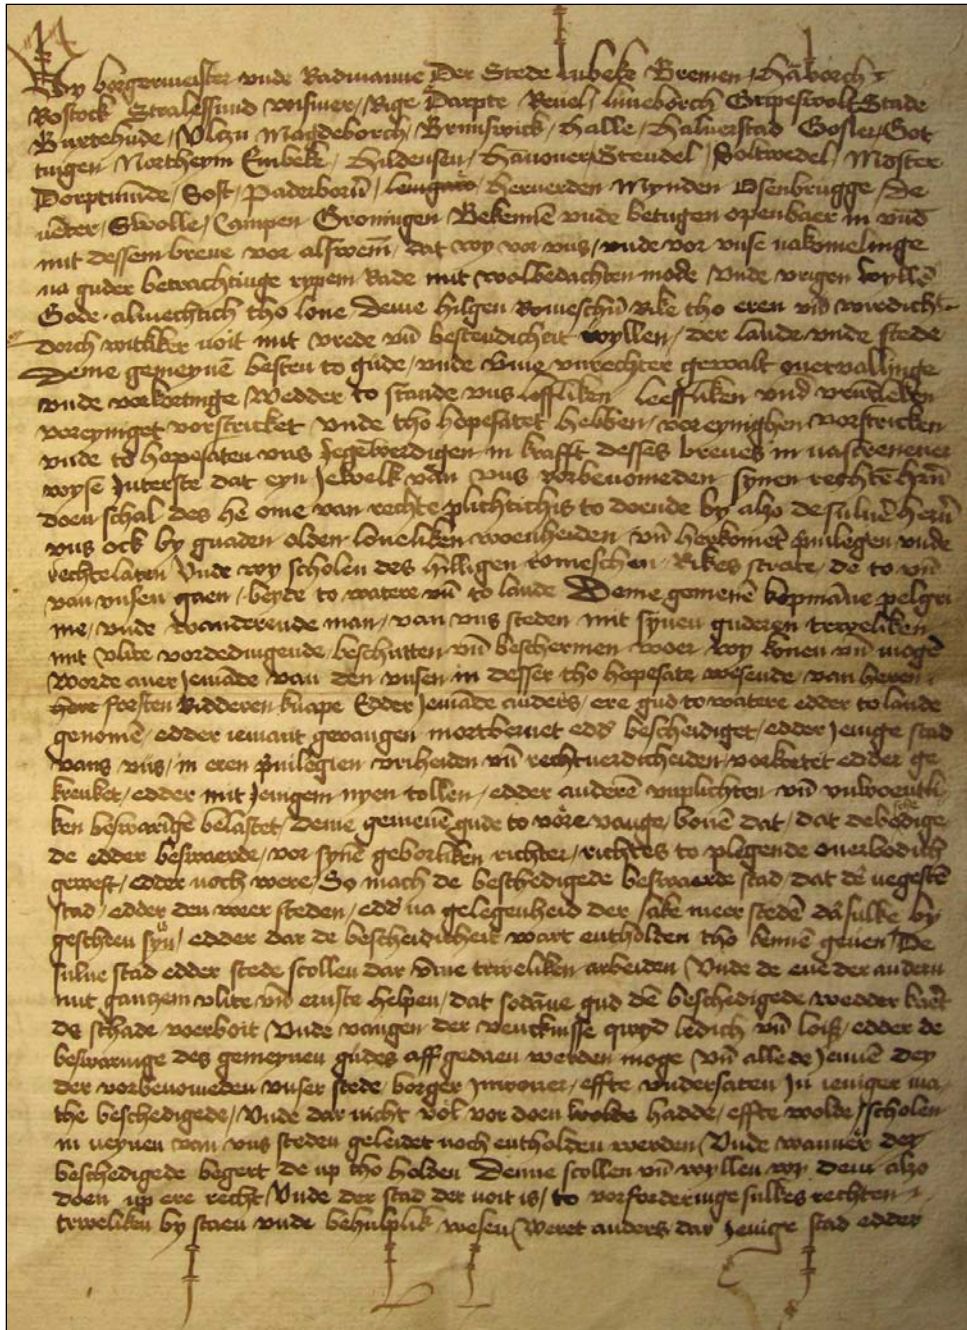 Wy borgermeister vnde Radmanne Der Stede lubeke Bremen hāborch
Rostock Stralessund wismer Rige Darpte Reuel luneborch Gripeswolt Stade
Buxtehude Vlzn Magdeborch Brunswick halle haluerstad Gosler Got
tingen Northeym Embeke hildensen hānouer Stendel Soltwedel Mōster
Dorptmūde Sost Paderborn̄ heruerden Mynden Osenbrugge De
uēter Swolle Campen Groningen Bekennē vnde betugen openbaer in vnd̄
mit dessem breue vor alswem̄ dat wy vor vns vnde vor vnse nakomelinge
na guder betrachtinge rypem Rade mit wolbedachten mode vnde vrigen wyllē
Gode almechtich tho loue Deme hilgen Romeschn̄ Rike tho eren vn̄ wirdicht
Dorch witliker noit mit vrede vn̄ bestendicheit wyllen der lande vnde stede
Deme gemeynē besten to gude vnde vmme vnrechter gewalt ouervallinge
vnde vorkortinge Wedder to stande vns loffliken leeffliken vnd vrūtliken
voreyniget vorstricket vnde tho hopesatet hebben voreynighen vorstricken
vnde to hopesaten vns Jegēwerdigen in krafft desses breues in nascreuener
wyse Interste dat eyn Jewelk van vns vorbenomeden synen rechtē hern̄
doen schal des he ome van rechte plichtich is to doende by also de suluē hern̄
vns ock by gnaden olden loueliken woenheiden vn̄ herkomēt priuilegen vnde
rechte laten Vnde wy scholen des hilligen romeschen Rikes strate de to vn̄
van vnsen gaen beyde to watere vn̄ to lande Deme gemenē kopmāne pelgri
me vnde wanderende man van vns steden mit synen guderen truweliken
mit vlite vordedingende beschutten vn̄ beschermen woer wy konen vn̄ mogē
Worde auer Jemāde van den vnsen in desser tho hopesate wesende van heren
forsten Ridderen knape Edder Jemāde anders ere gud to watere edder to lande
genomē edder iemant geuangen mortbernet edd' bescheidiget edder Jenige stad
vans vns in eren priuilegien vriheiden vn̄ rechtuerdicheiden vorkortet edder ge
krenket edder mit Jenigem nyen tollen edder anderē vnplichten vn̄ vnwoentli
ken beswaringē belastet deme gemenē gude to vōre vange bouē dat dat de
de edder beswaerde vor synē geborliken richter richtes to plegende ouerbodich
gewest edder noch were So mach de beschedigede beswaerde stad dat dē negestē
stad edder den veer steden edd' na gelegenheid der sake meer stedē dā sulke by
gescheen syn edder dar de bescheidicheit wart entholden tho kennē geuen De
sulue stad edder stede scollen dar vmme truweliken arbeiden Vnde de ene der andern
mit gantzem vlite vn̄ ernste helpen dat sodāne gud dē beschedigede wedder kaert
de schade vorboit Vnde vangen der venknisse qwyd ledich vn̄ loiß edder de
beswaringe des gemeynen gudes aff gedaen werden moge Vn̄ alle de Jennē dey
der vorbenomeden vnser stede borger Inwoner effte vndersaten In ieniger ma
the beschedigede Vnde dar nicht vol vor doen hadde effte wolde scholen
in neynen van vns steden geleidet noch entholden werden Vnde wanner dey
beschedigede begert de up tho holden Denne scollen vn̄ wyllen wy dem also
doen up ere recht Vnde der stad der noit is to vorforderinge sulkes rechten
truweliken by staen vnde behulplik wesen Weret anders dar Jenige stad edder